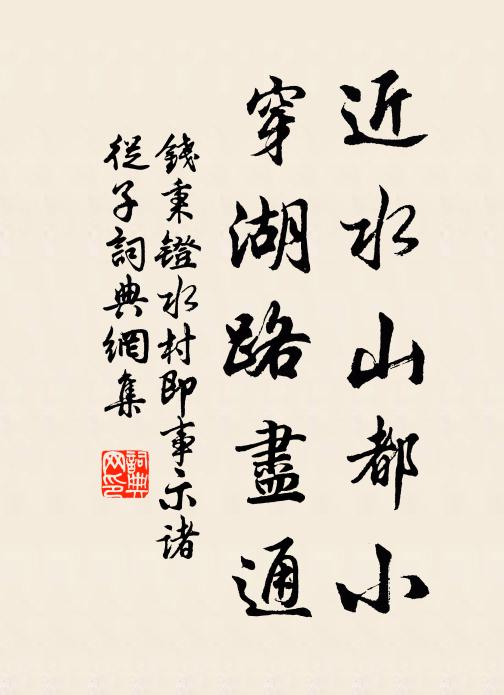 近水山都小
穿湖路盡通
錢秉鐙水村即事示諸
從子詞典網集
詞典网印